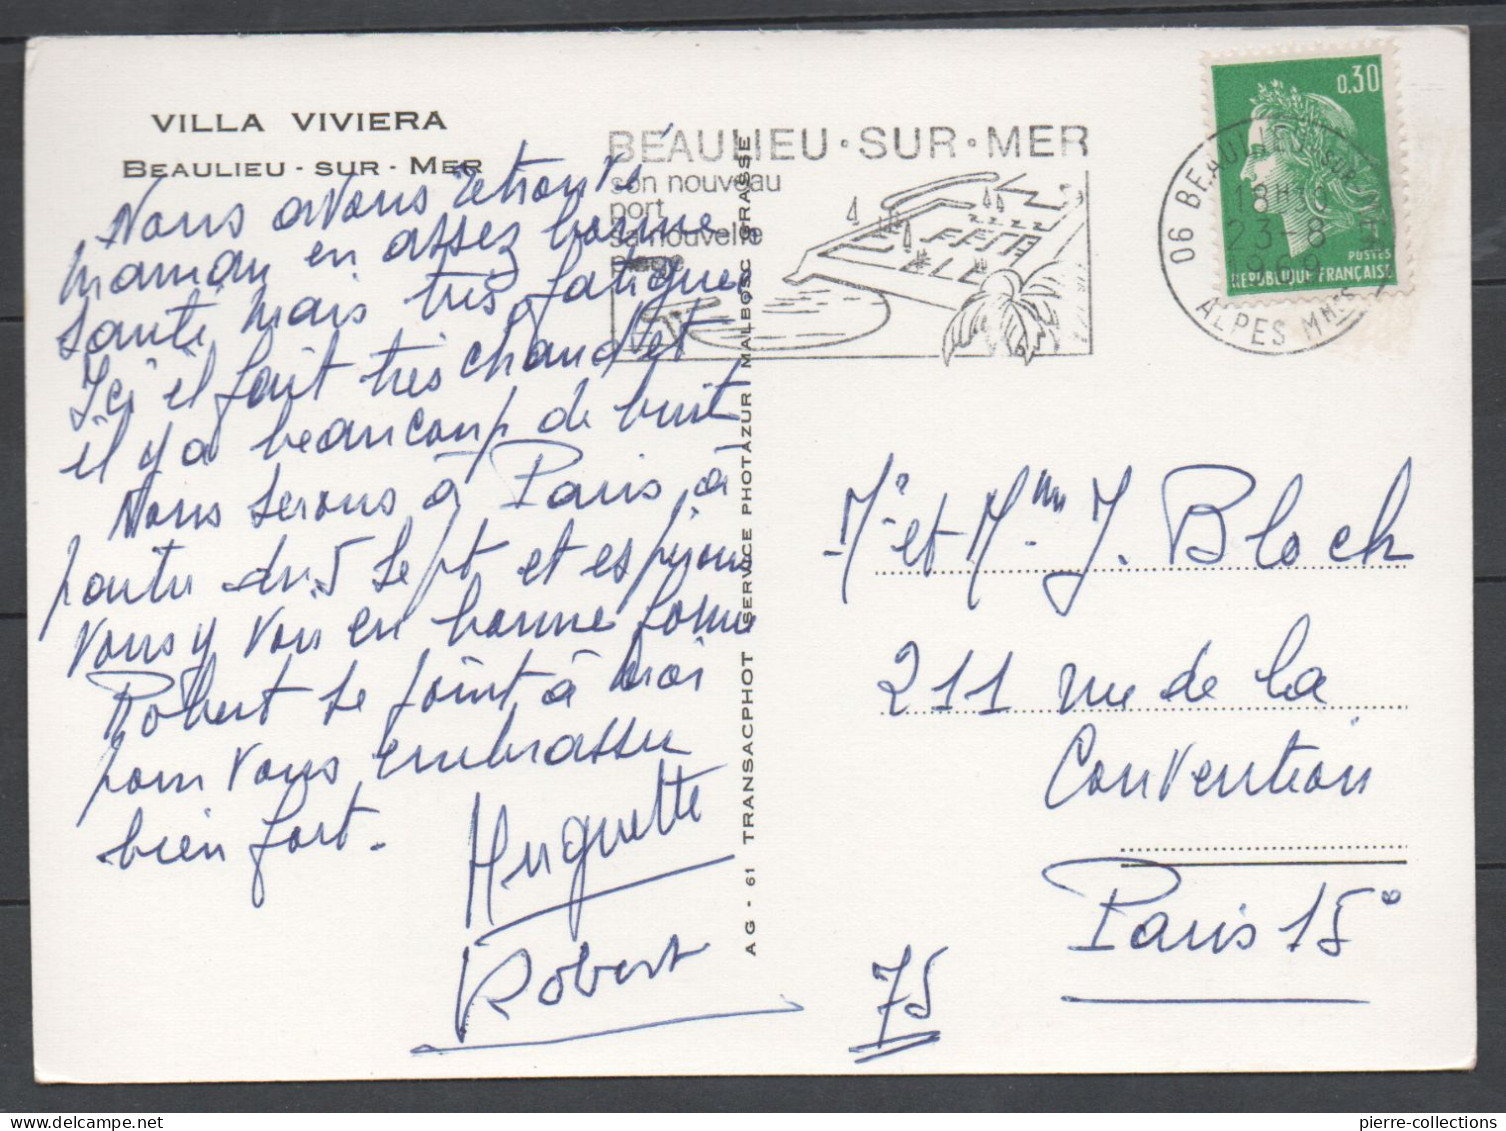 VILLA VIVIERA
BEAULIEU - SUR - MER
Nous avons retrouvé
maman en assez bonne
santé mais très fatiguée
Ici il fait très chaud et
il y a beaucoup de bruit
Nous serons à Paris à
partir du 5 Sept et espérons
vous y voir en bonne forme
Robert se joint à moi
pour vous embrasser
bien fort.
Huguette
Robert
BEAULIEU·SUR·MER
son nouveau
port
sa nouvelle
plage
AG - 61 TRANSACPHOT SERVICE PHOTAZUR MALBOSC GRASSE
0,30
POSTES
REPUBLIQUE FRANÇAISE
06 BEAULIEU SUR MER
18H
23-8
1969
ALPES MMES
Mr et Mme J. Bloch
211 rue de la
Convention
Paris 15e
75
pierre-collections